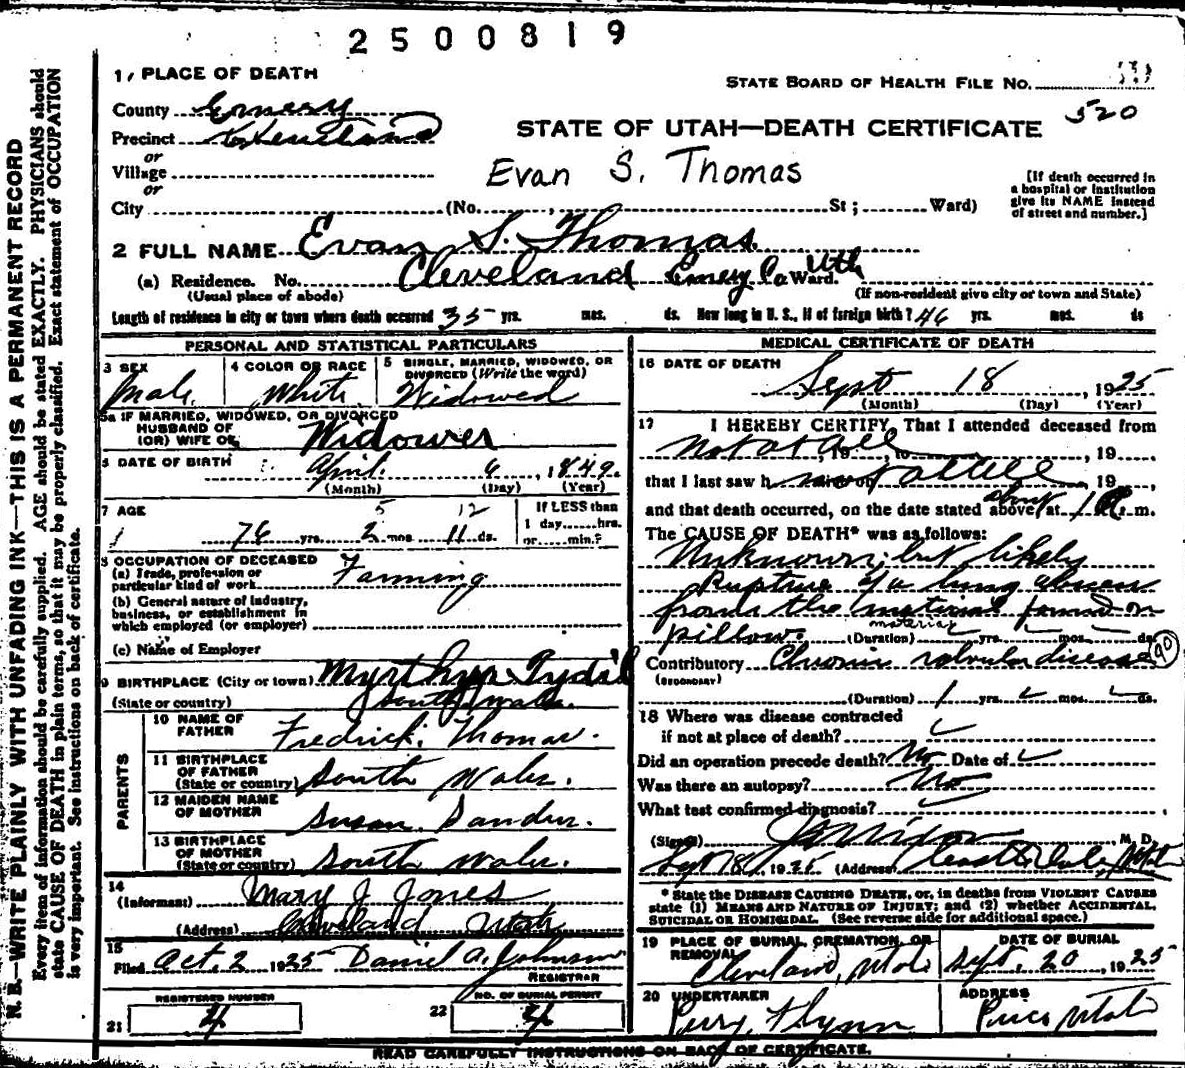 2500819
1/ PLACE OF DEATH
STATE BOARD OF HEALTH FILE NO.
520
County Emery
Precinct Cleveland
or
Village
or
City (No. , St; Ward)
STATE OF UTAH—DEATH CERTIFICATE
Evan S. Thomas
[If death occurred in
a hospital or institution
give its NAME instead
of street and number.]
2 FULL NAME Evan S. Thomas
(a) Residence. No. Cleveland Emery Co Utah Ward.
(Usual place of abode) (If non-resident give city or town and State)
Length of residence in city or town where death occurred 35 yrs. mos. ds. How long in U. S., if of foreign birth? 46 yrs. mos. ds
PERSONAL AND STATISTICAL PARTICULARS
3 SEX
Male
4 COLOR OR RACE
White
5 SINGLE, MARRIED, WIDOWED, OR
DIVORCED (Write the word)
Widowed
5a IF MARRIED, WIDOWED, OR DIVORCED
HUSBAND OF
(OR) WIFE OF Widower
6 DATE OF BIRTH April 6, 1849.
(Month) (Day) (Year)
7 AGE 5 12
76 yrs. 2 mos 11 ds.
If LESS than
1 day......hrs.
or ......min.?
8 OCCUPATION OF DECEASED
(a) Trade, profession or
particular kind of work Farming
(b) General nature of industry,
business, or establishment in
which employed (or employer)
(c) Name of Employer
9 BIRTHPLACE (City or town) Myrthyr Tydil
(State or country) South Wales.
PARENTS
10 NAME OF
FATHER Fredrick Thomas.
11 BIRTHPLACE
OF FATHER
(State or country) South Wales.
12 MAIDEN NAME
OF MOTHER Susan
13 BIRTHPLACE
OF MOTHER
(State or country) South Wales.
14
(Informant) Mary J Jones
(Address) Cleveland Utah
15
Filed Oct. 2 1925 Daniel A. Johnson
REGISTRAR
REGISTERED NUMBER
21 4
NO. OF BURIAL PERMIT
22 4
MEDICAL CERTIFICATE OF DEATH
16 DATE OF DEATH
Sept 18, 1925
(Month) (Day) (Year)
17 I HEREBY CERTIFY, That I attended deceased from
not at all, 19 , to , 19 ,
that I last saw h not at all , 19 ,
and that death occurred, on the date stated above, at about 1 m.
The CAUSE OF DEATH* was as follows:
Unknown; but likely
Rupture of a lung abscess
from the material found on
pillow. material
(Duration) yrs. mos. ds.
Contributory Chronic valvular disease 90
(SECONDARY)
(Duration) 1 yrs. mos. ds.
18 Where was disease contracted
if not at place of death?
Did an operation precede death? No Date of
Was there an autopsy? No
What test confirmed diagnosis?
(Signed) M. D.
Sept 18, 1925 (Address) Castle Dale, Utah
* State the DISEASE CAUSING DEATH, or, in deaths from VIOLENT CAUSES
state (1) MEANS AND NATURE OF INJURY; and (2) whether ACCIDENTAL,
SUICIDAL OR HOMICIDAL. (See reverse side for additional space.)
19 PLACE OF BURIAL, CREMATION, OR
REMOVAL
Cleveland, Utah
DATE OF BURIAL
Sept. 20, 1925
20 UNDERTAKER
Perry Flynn
ADDRESS
Price Utah
READ CAREFULLY INSTRUCTIONS ON BACK OF CERTIFICATE.
N. B.—WRITE PLAINLY WITH UNFADING INK—THIS IS A PERMANENT RECORD
Every item of information should be carefully supplied. AGE should be stated EXACTLY. PHYSICIANS should
state CAUSE OF DEATH in plain terms, so that it may be properly classified. Exact statement of OCCUPATION
is very important. See instructions on back of certificate.